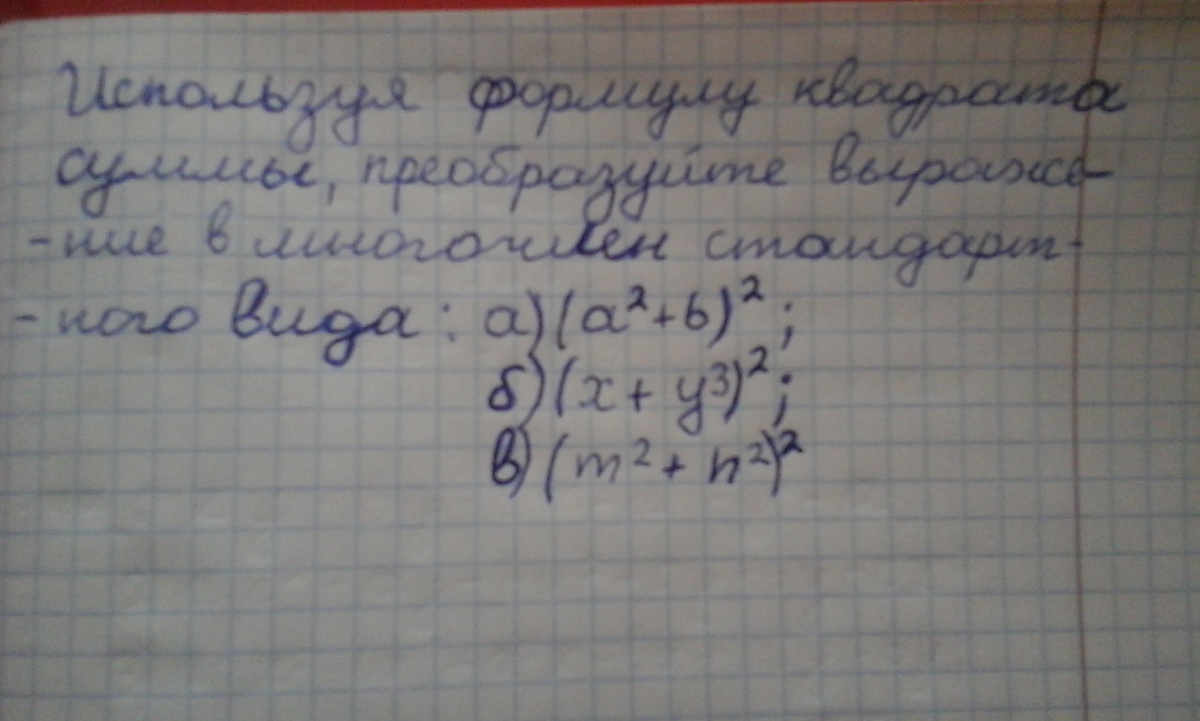 Используя формулу квадрата
суммы, преобразуйте выраже-
-ние в многочлен стандарт-
-ного вида: а) (a²+b)²;
б) (x + y³)²;
в) (m² + n²)²